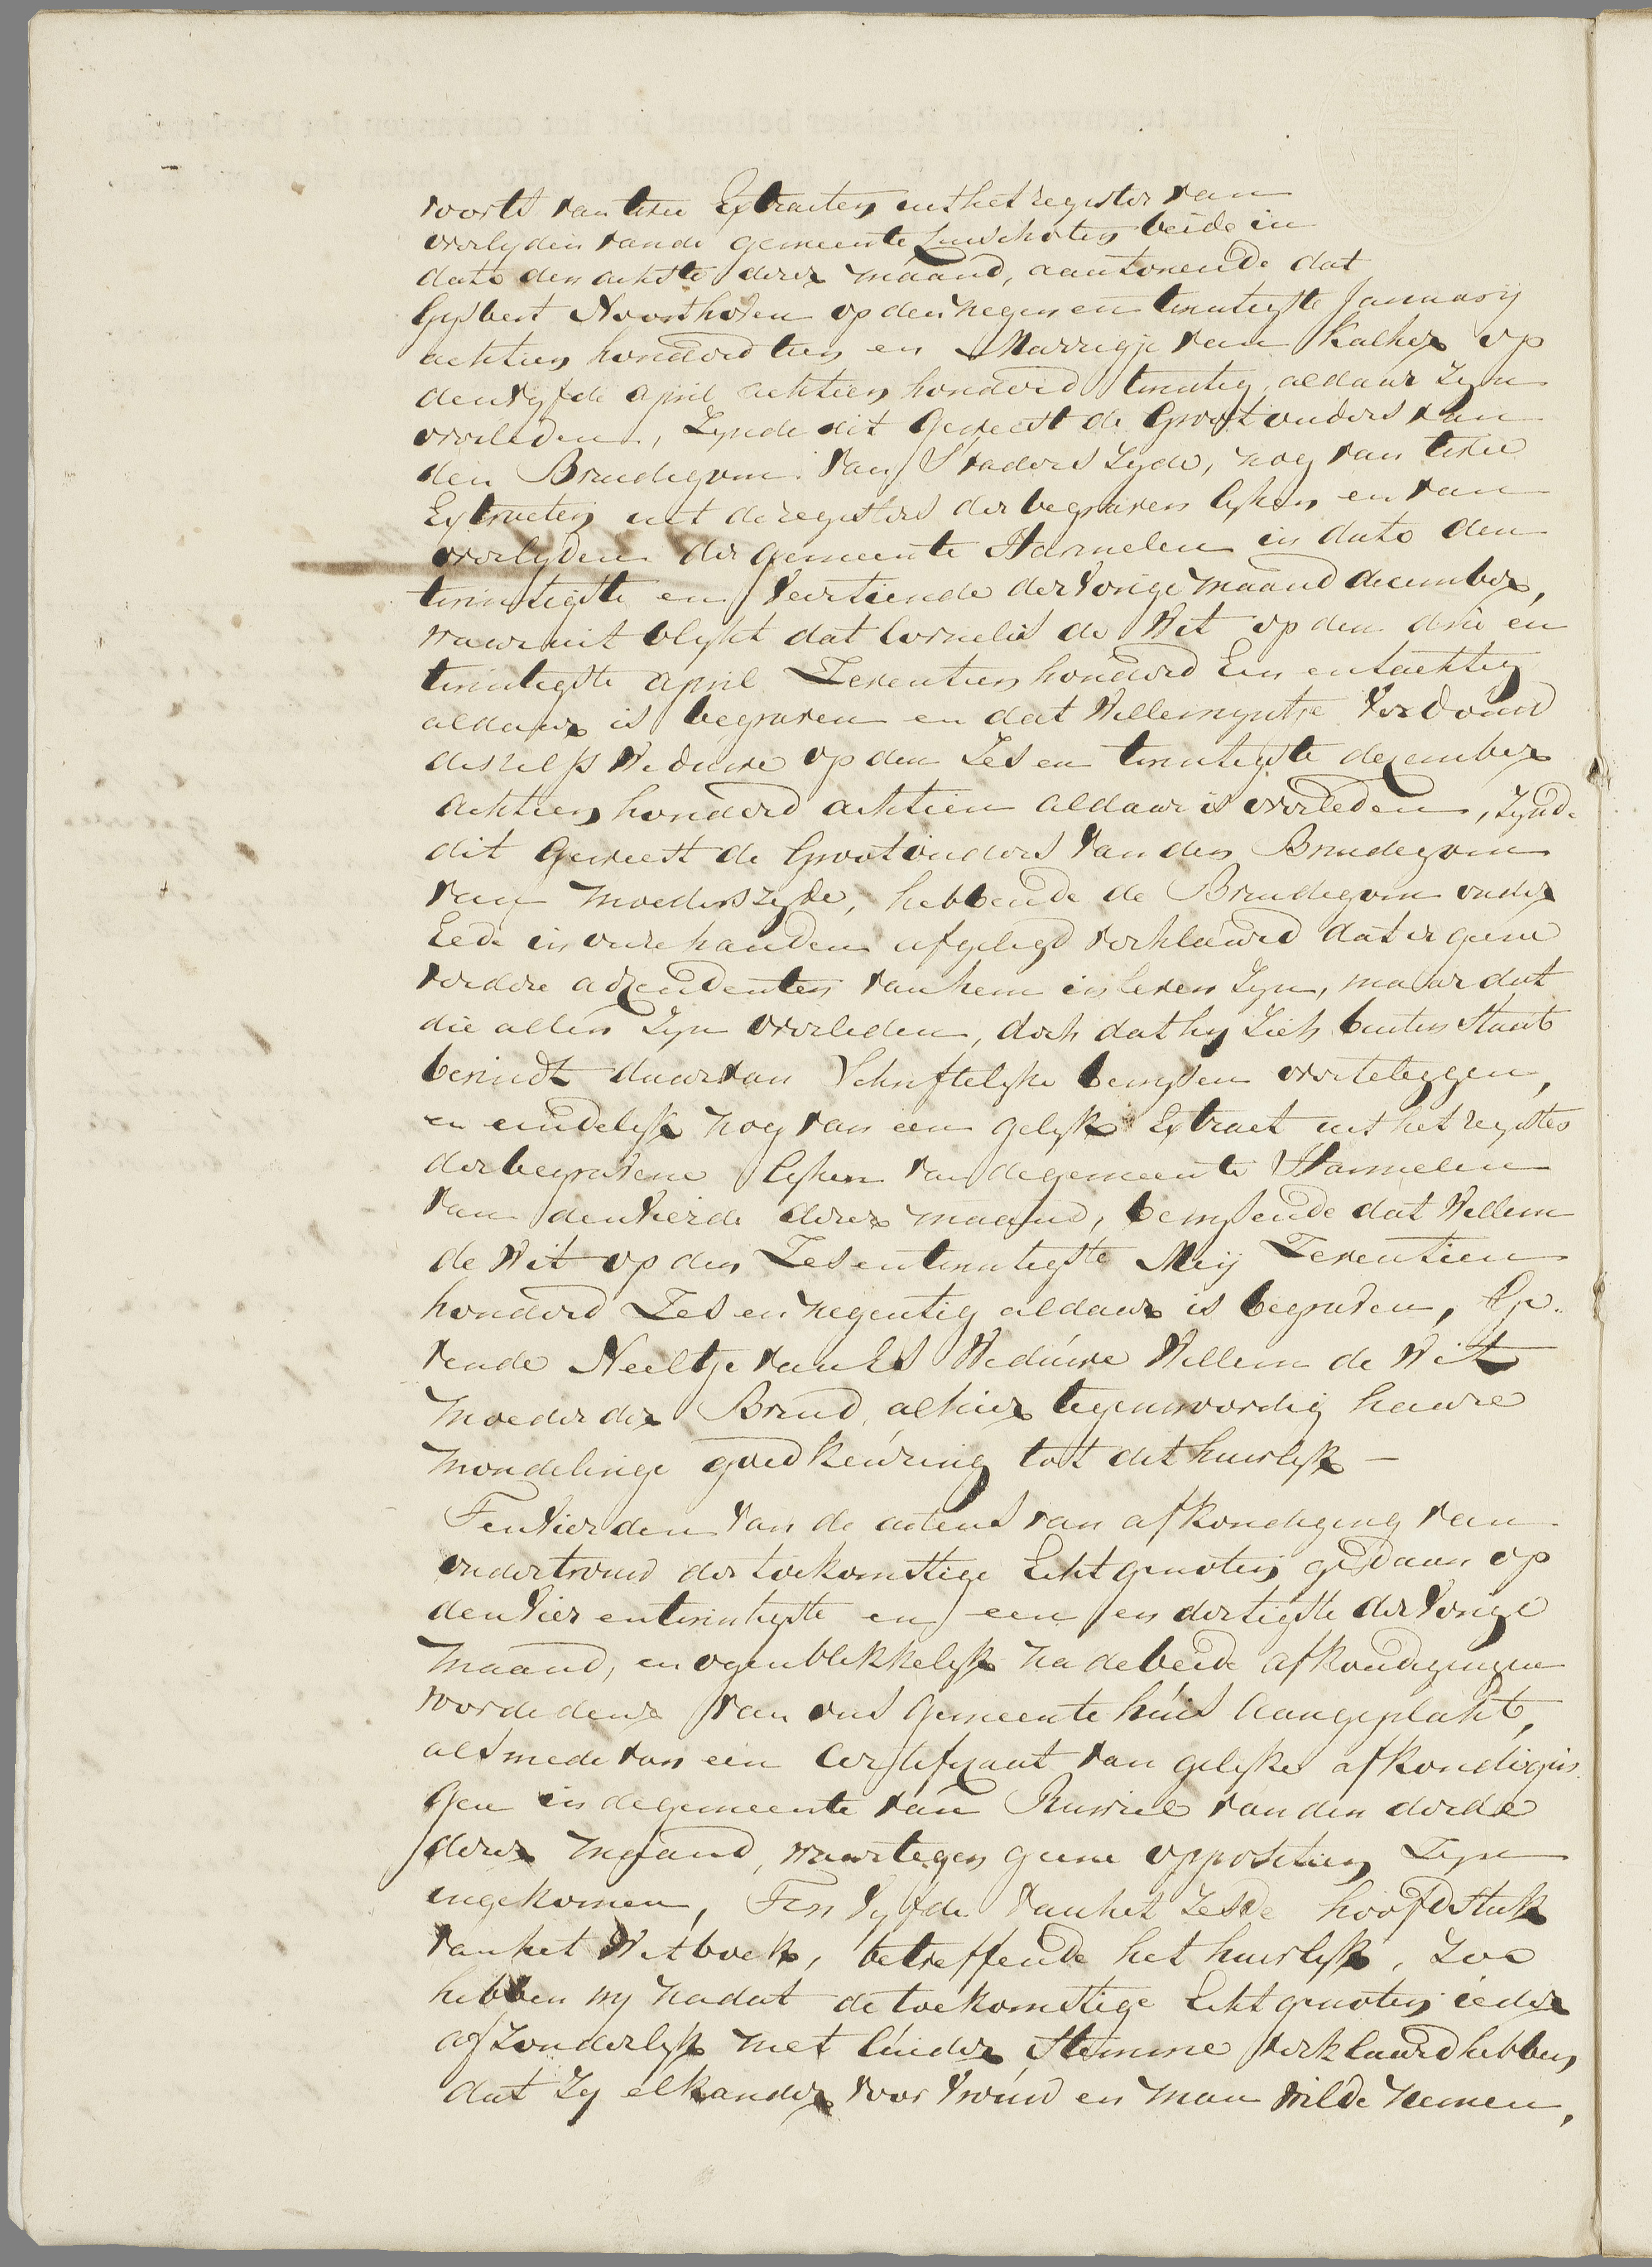 voorts van twee Extracten uit het register van
overlyden van de gemeente Linschoten beide in
dato den achtste dezer maand, aantonende dat
Gysbert Noorthoven op den negen en twintigste January
achtien honderd tien en Marrigje van Kalker op
den vyfde april achtien honderd twintig aldaar zyn
overleden, Zynde dit geweest de Grootouders van
den Bruidegom van s'vaders zyde, nog van twee
Extracten uit de registers der begraven lyken en van
overlyden der gemeente Harmelen in dato den
twintigste en veertiende der vorige maand december,
waaruit blykt dat Cornelis de Wit op den drie en
twintigste april Zeventien honderd Een en tachtig
aldaar is begraven en dat Willemyntje Verdouw
deszelfs Weduwe op den Zes en twintigste december
achtien honderd achtien aldaar is overleden, zynde
dit geweest de Grootouders van den Bruidegom
van moeders zyde, hebbende de Bruidegom onder
Eede in onze handen afgelegd verklaard dat er geene
verdere adzendenten van hem in leven zyn, maar dat
die allen zyn overleden, doch dat hy zich buiten staat
bevindt daarvan Schriftelyke bewyzen overteleggen,
en eindelyk nog van een gelyk Extract uit het register
der begravene lyken van de gemeente Harmelen
van den vierde dezer maand, bewyzende dat Willem
de Wit op den Zes en twintigste Mey Zeventien
honderd Zes en negentig aldaar is begraven, Ge-
vende Neeltje Weduwe Willem de Wit
moeder der Bruid, alhier tegenwoordig haare
mondelinge goedkeuring tot dit huwlyk —
Ten Vierden van de actens van afkondiging van
ondertrouw der toekomstige Echtgenoten gedaan op
den vier en twintigste en een en dertigste der vorige
maand, en ogenblikkelyk na de beide afkondigingen
voor de deur van ons gemeente huis aangeplakt,
alsmede van een Certificaat van gelyke afkondigin-
gen in de gemeente van Ruwiel van den derde
dezer maand, waartegen geene oppositien zyn
ingekomen, Ten Vyfde van het Zesde hoofdstuk
van het Wetboek, betreffende het huwlyk, Zoo
hebben wy nadat de toekomstige Echtgenoten ieder
afzonderlyk met luider stemme verklaard hebben
dat zy elkander voor vrouw en man wilde nemen,